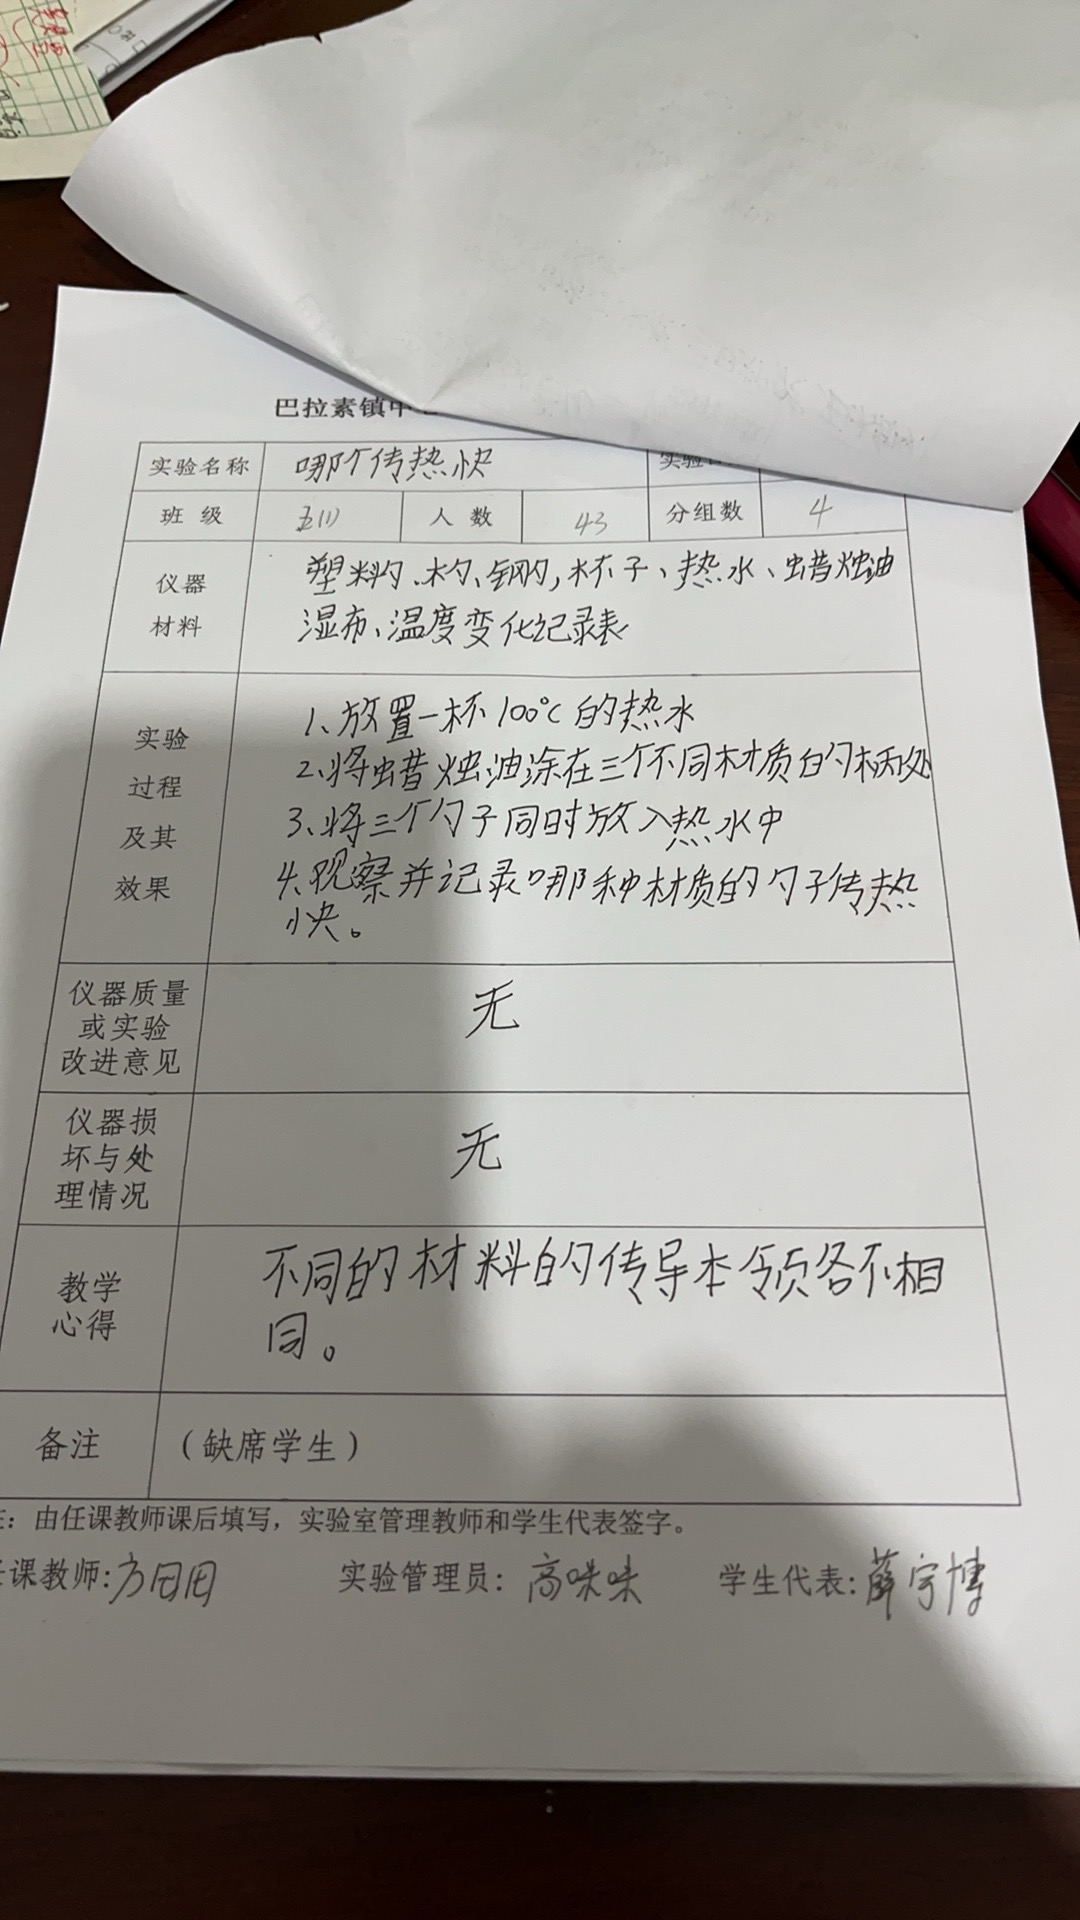 巴拉素镇中心
实验名称 哪个传热快 实验
班级 五(1) 人数 43 分组数 4
仪器材料 塑料勺、木勺、钢勺,杯子、热水、蜡烛油
湿布、温度变化记录表
实验过程及其效果 1、放置一杯100℃的热水
2、将蜡烛油涂在三个不同材质的勺柄处
3、将三个勺子同时放入热水中
4、观察并记录哪种材质的勺子传热
快。
仪器质量或实验改进意见 无
仪器损坏与处理情况 无
教学心得 不同的材料的传导本领各不相
同。
备注 (缺席学生)
注:由任课教师课后填写,实验室管理教师和学生代表签字。
任课教师: 实验管理员: 高咪咪 学生代表:薛宇博